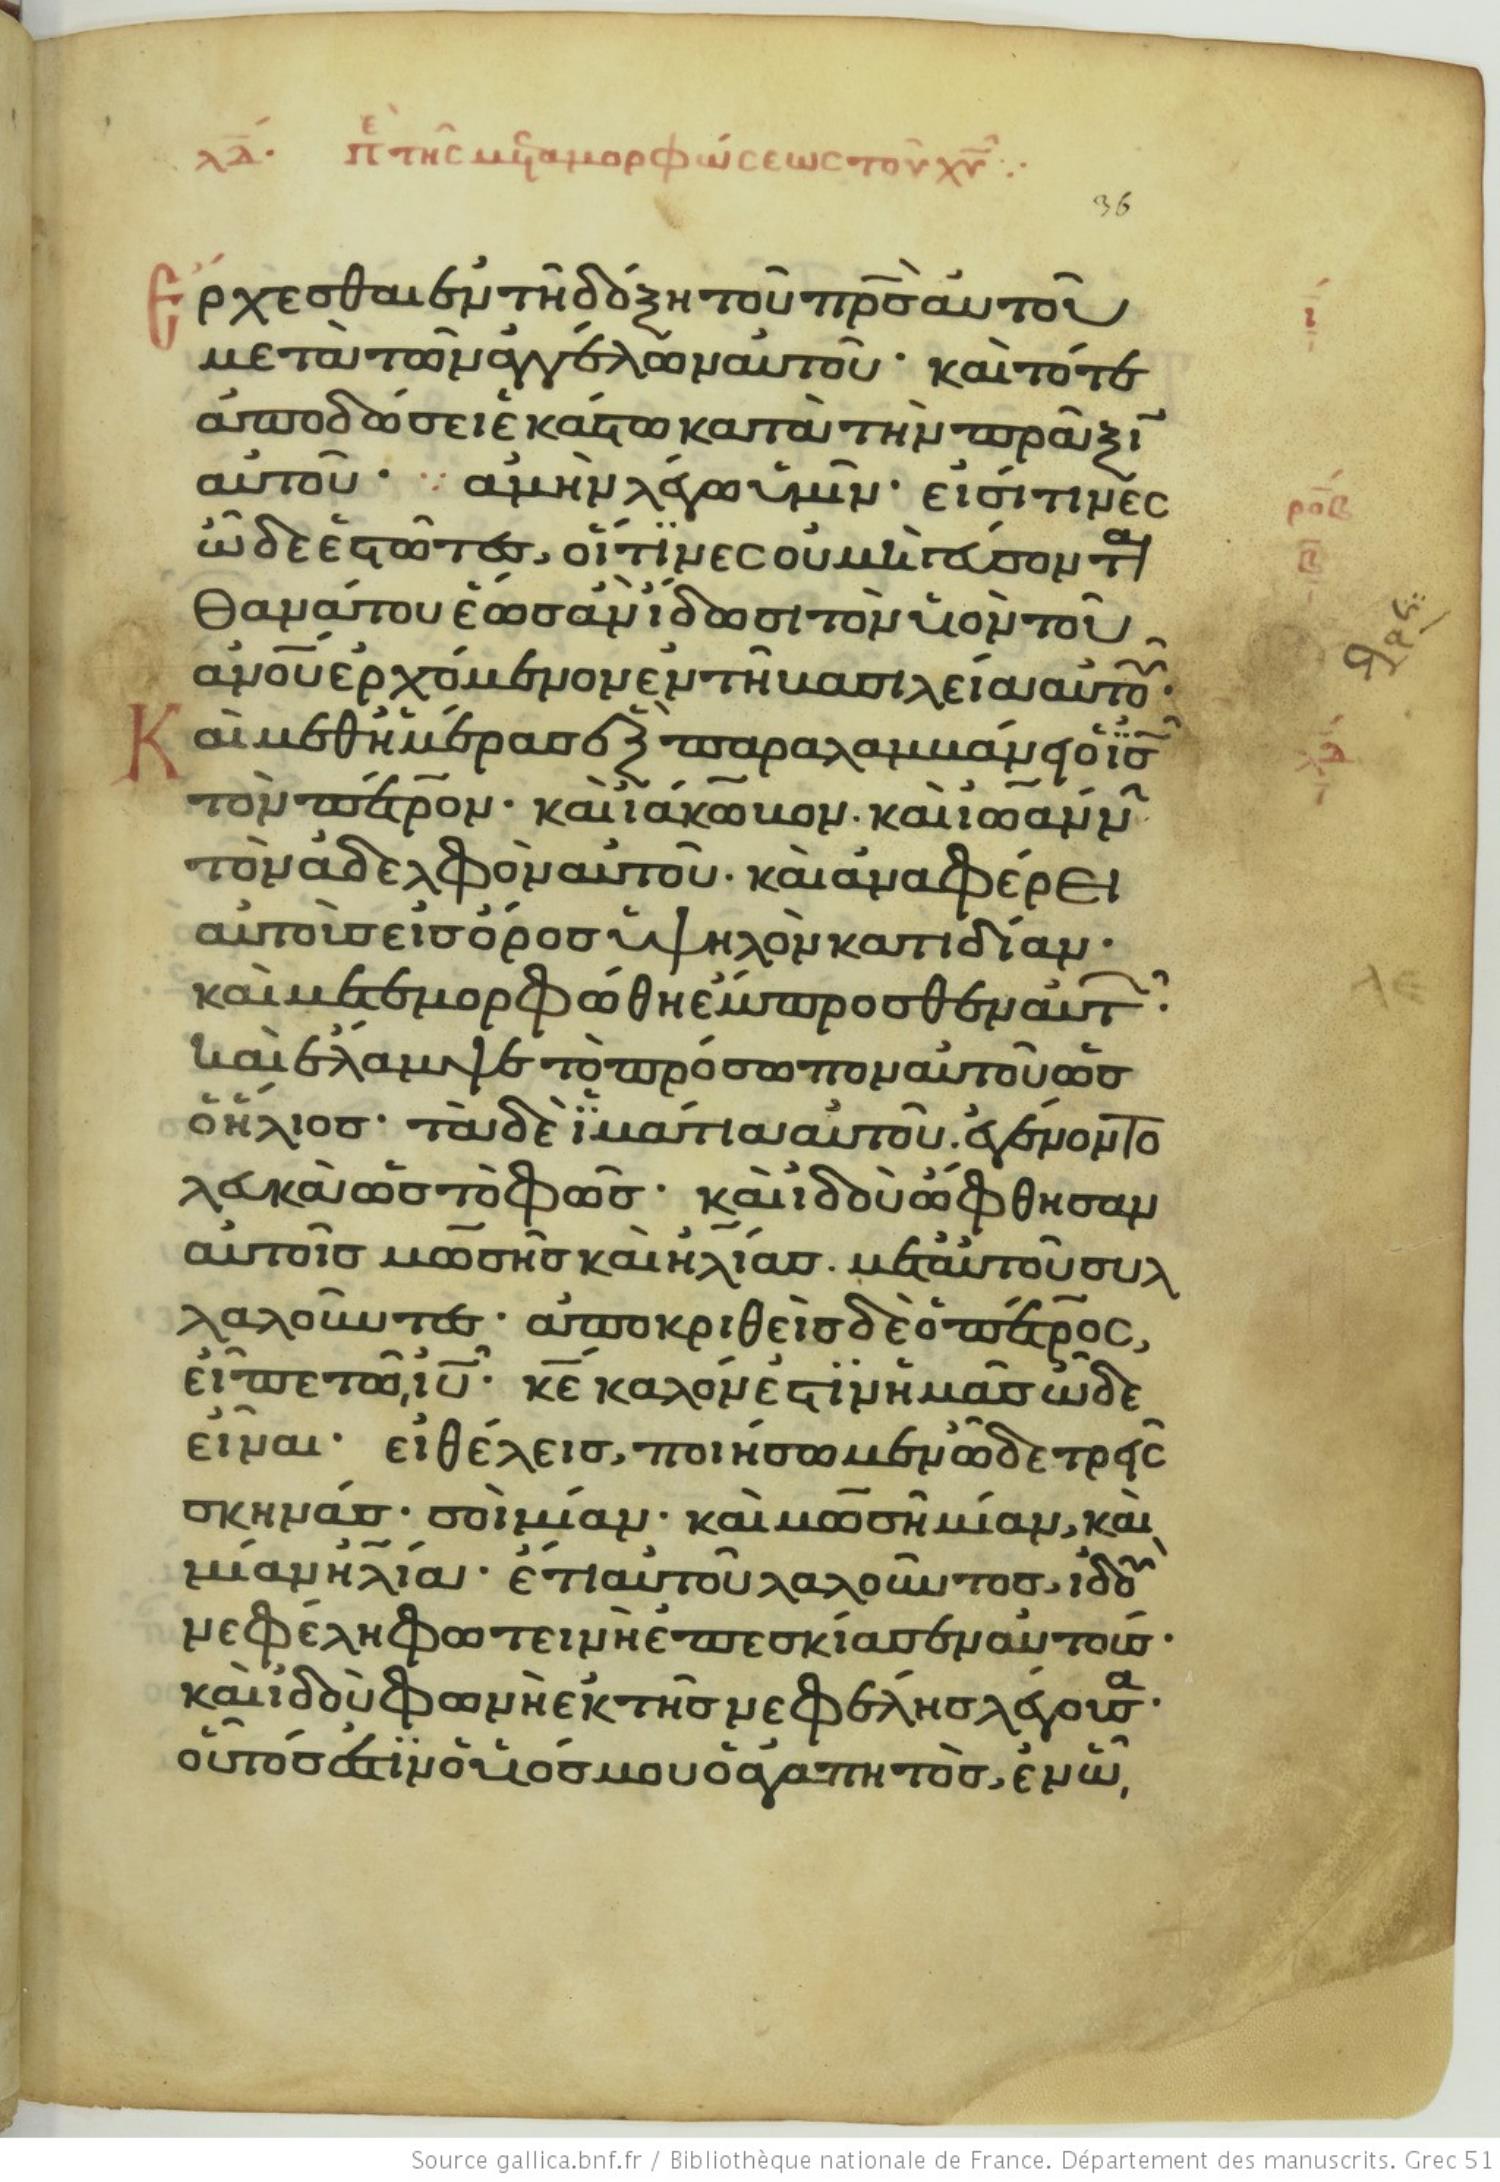 λδ· πε τῆς μεταμορφώσεως τοῦ χυ ·:·
36
Ἔρχεσθαι ἐν τῆ δόξη τοῦ πρσ αὐτοῦ
μετὰ τῶν ἀγγέλων αὐτοῦ· καὶ τότε
ἀποδώσει ἑκάστω κατὰ τὴν πρᾶξῖ
αὐτοῦ· ἀμὴν λέγω ὑμῖν· εἰσί τινες
ὧδε ἑστῶτες, οἵτϊνες οὐ μὴ γεύσονται
θανάτου ἕως ἂν ἴδωσι τὸν υἱὸν τοῦ
ἀνου ἐρχόμενον ἐν τῆ βασιλεία αὐτοῦ·
Καὶ μεθ' ἡμέρας ἓξ παραλαμβάνει ὁ ϊσ
τὸν πέτρον· καὶ ϊάκωβον· καὶ ἰωάννην
τὸν ἀδελφὸν αὐτοῦ· καὶ ἀναφέρει
αὐτοὺς εἰς ὄρος ὑψηλὸν κατιδίαν·
καὶ μετεμορφώθη ἔμπροσθεν αὐτῶν·
καὶ ἔλαμψε τὸ πρόσωπον αὐτοῦ ὡς
ὁ ἥλιος· τὰ δὲ ϊμάτια αὐτοῦ· ἐγένοντο
λευκὰ ὡς τὸ φῶς· καὶ ἰδοὺ ὤφθησαν
αὐτοῖς μωσῆς καὶ ἠλίας· μετ' αὐτοῦ συλ
λαλοῦντες· ἀποκριθεὶς δὲ ὁ πέτρος,
εἶπε τῶ, ιυ· κε καλόν ἐστϊν ἡμᾶς ὧδε
εἶναι· εἰ θέλεις, ποιήσωμεν ὧδε τρεῖς
σκηνάς· σοὶ μίαν· καὶ μωσῆ μίαν, καὶ
μίαν ἠλία· ἔτι αὐτοῦ λαλοῦντος, ἰδοὺ
νεφέλη φωτεινὴ ἐπεσκίασεν αὐτούς·
καὶ ἰδοὺ φωνὴ ἐκ τῆς νεφέλης λέγουσα·
οὗτός ἐστϊν ὁ υἱός μου ὁ ἀγαπητὸς, ἐν ὧ,
ι
ροβ
β
λδ
λε
Source gallica.bnf.fr / Bibliothèque nationale de France. Département des manuscrits. Grec 51